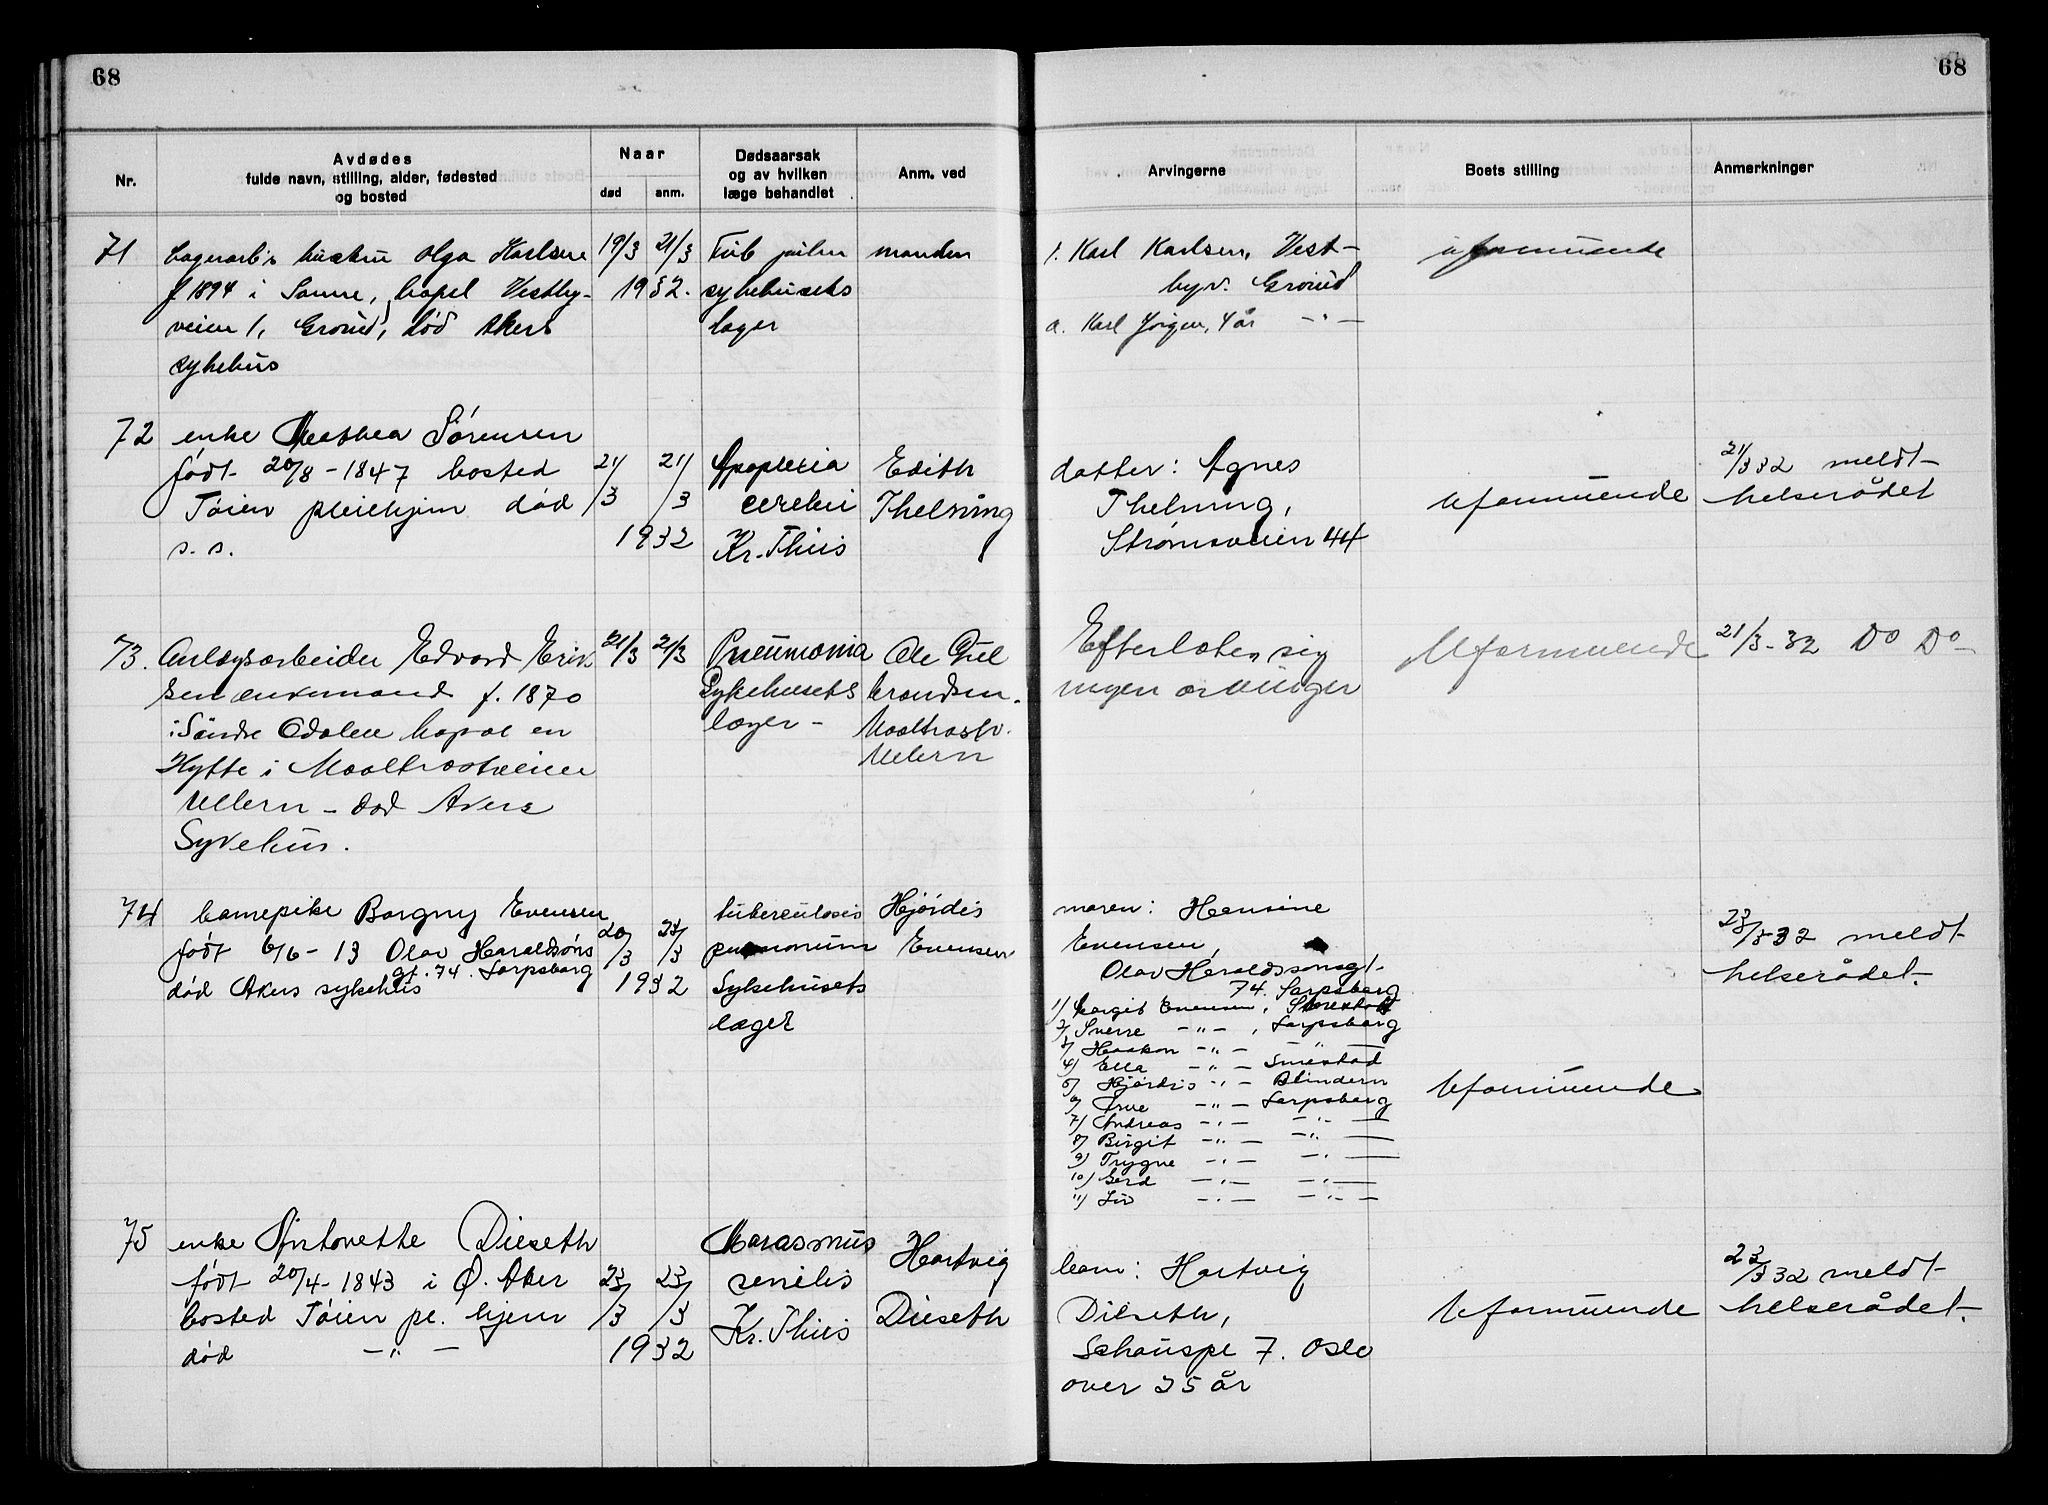 68
68
Nr.
Avdødes
fulde navn, stilling, alder, fødested
og bosted
Naar
død
anm.
Dødsaarsak
og av hvilken
læge behandlet
Anm. ved
Arvingerne
Boets stilling
Anmerkninger
71
hustru Olga Karlsen
f 1894 i bopel Vestby-
veien 1, Grorud, død Akers
sykehus
19/3 21/3
1932.
Tub pulm
sykehusets
læger
manden
1. Karl Karlsen, Vest-
byv. Grorud
a. Karl Jörgen, 4 år —"—
uformuende
72
enke Mathea Sörensen
født 20/8-1847 bosted
Töien pleiehjem død
s. s.
21/3 21/3
1932
Apoplexia
cerebri
Kr. Thiis
Edith
Thelning
datter: Agnes
Thelning,
Strømsveien 44
Uformuende
21/3 32 meldt
helserådet
73.
Anlægsarbeider Edvard Erik
sen enkemand f. 1870
i Söndre Odalen bopæl en
Hytte i Maaltrostveien
Ullern - død Akers
Sykehus.
21/3 21/3
Pneumonia
Sykehusets
læger -
Ole Gul
brandsen.
Maaltrostv.
Ullern
Efterlater sig
ingen arvinger
Uformuende
21/3-32 Do Do
74
barnepike Borgny Evensen
født 6/6-13 Olav Haraldsöns
gt. 74. Sarpsborg
død Akers sykehus
20/3 23/3
1932
tuberculosis
pulmonum
Sykehusets
læger
Hjördis
Evensen
moren: Hansine
Evensen,
Olav Haraldssonsgt.
74. Sarpsborg
1) Margit Evensen, Smestad
2) Sverre —"—, Sarpsborg
3) Haakon —"— —"—
4) Ella —"— Smestad
5) Hjördis —"— Blindern
6) Arne —"— Sarpsborg
7) Andreas —"— —"—
8) Birgit —"— —"—
9) Trygve —"— —"—
10) Gerd —"— —"—
11) Liv —"— —"—
Uformuende
23/3 32 meldt
helserådet.
75
enke Antonette Dieseth
født 20/4-1843 i Ø. Aker
bosted Töien pl. hjem
død —"—
23/3 23/3
1932
Marasmus
senilis
Kr. Thiis
Hartvig
Dieseth
barn: Hartvig
Dieseth,
Schouspl 7. Oslo
over 25 år
Uformuende
23/3 32 meldt
helserådet.